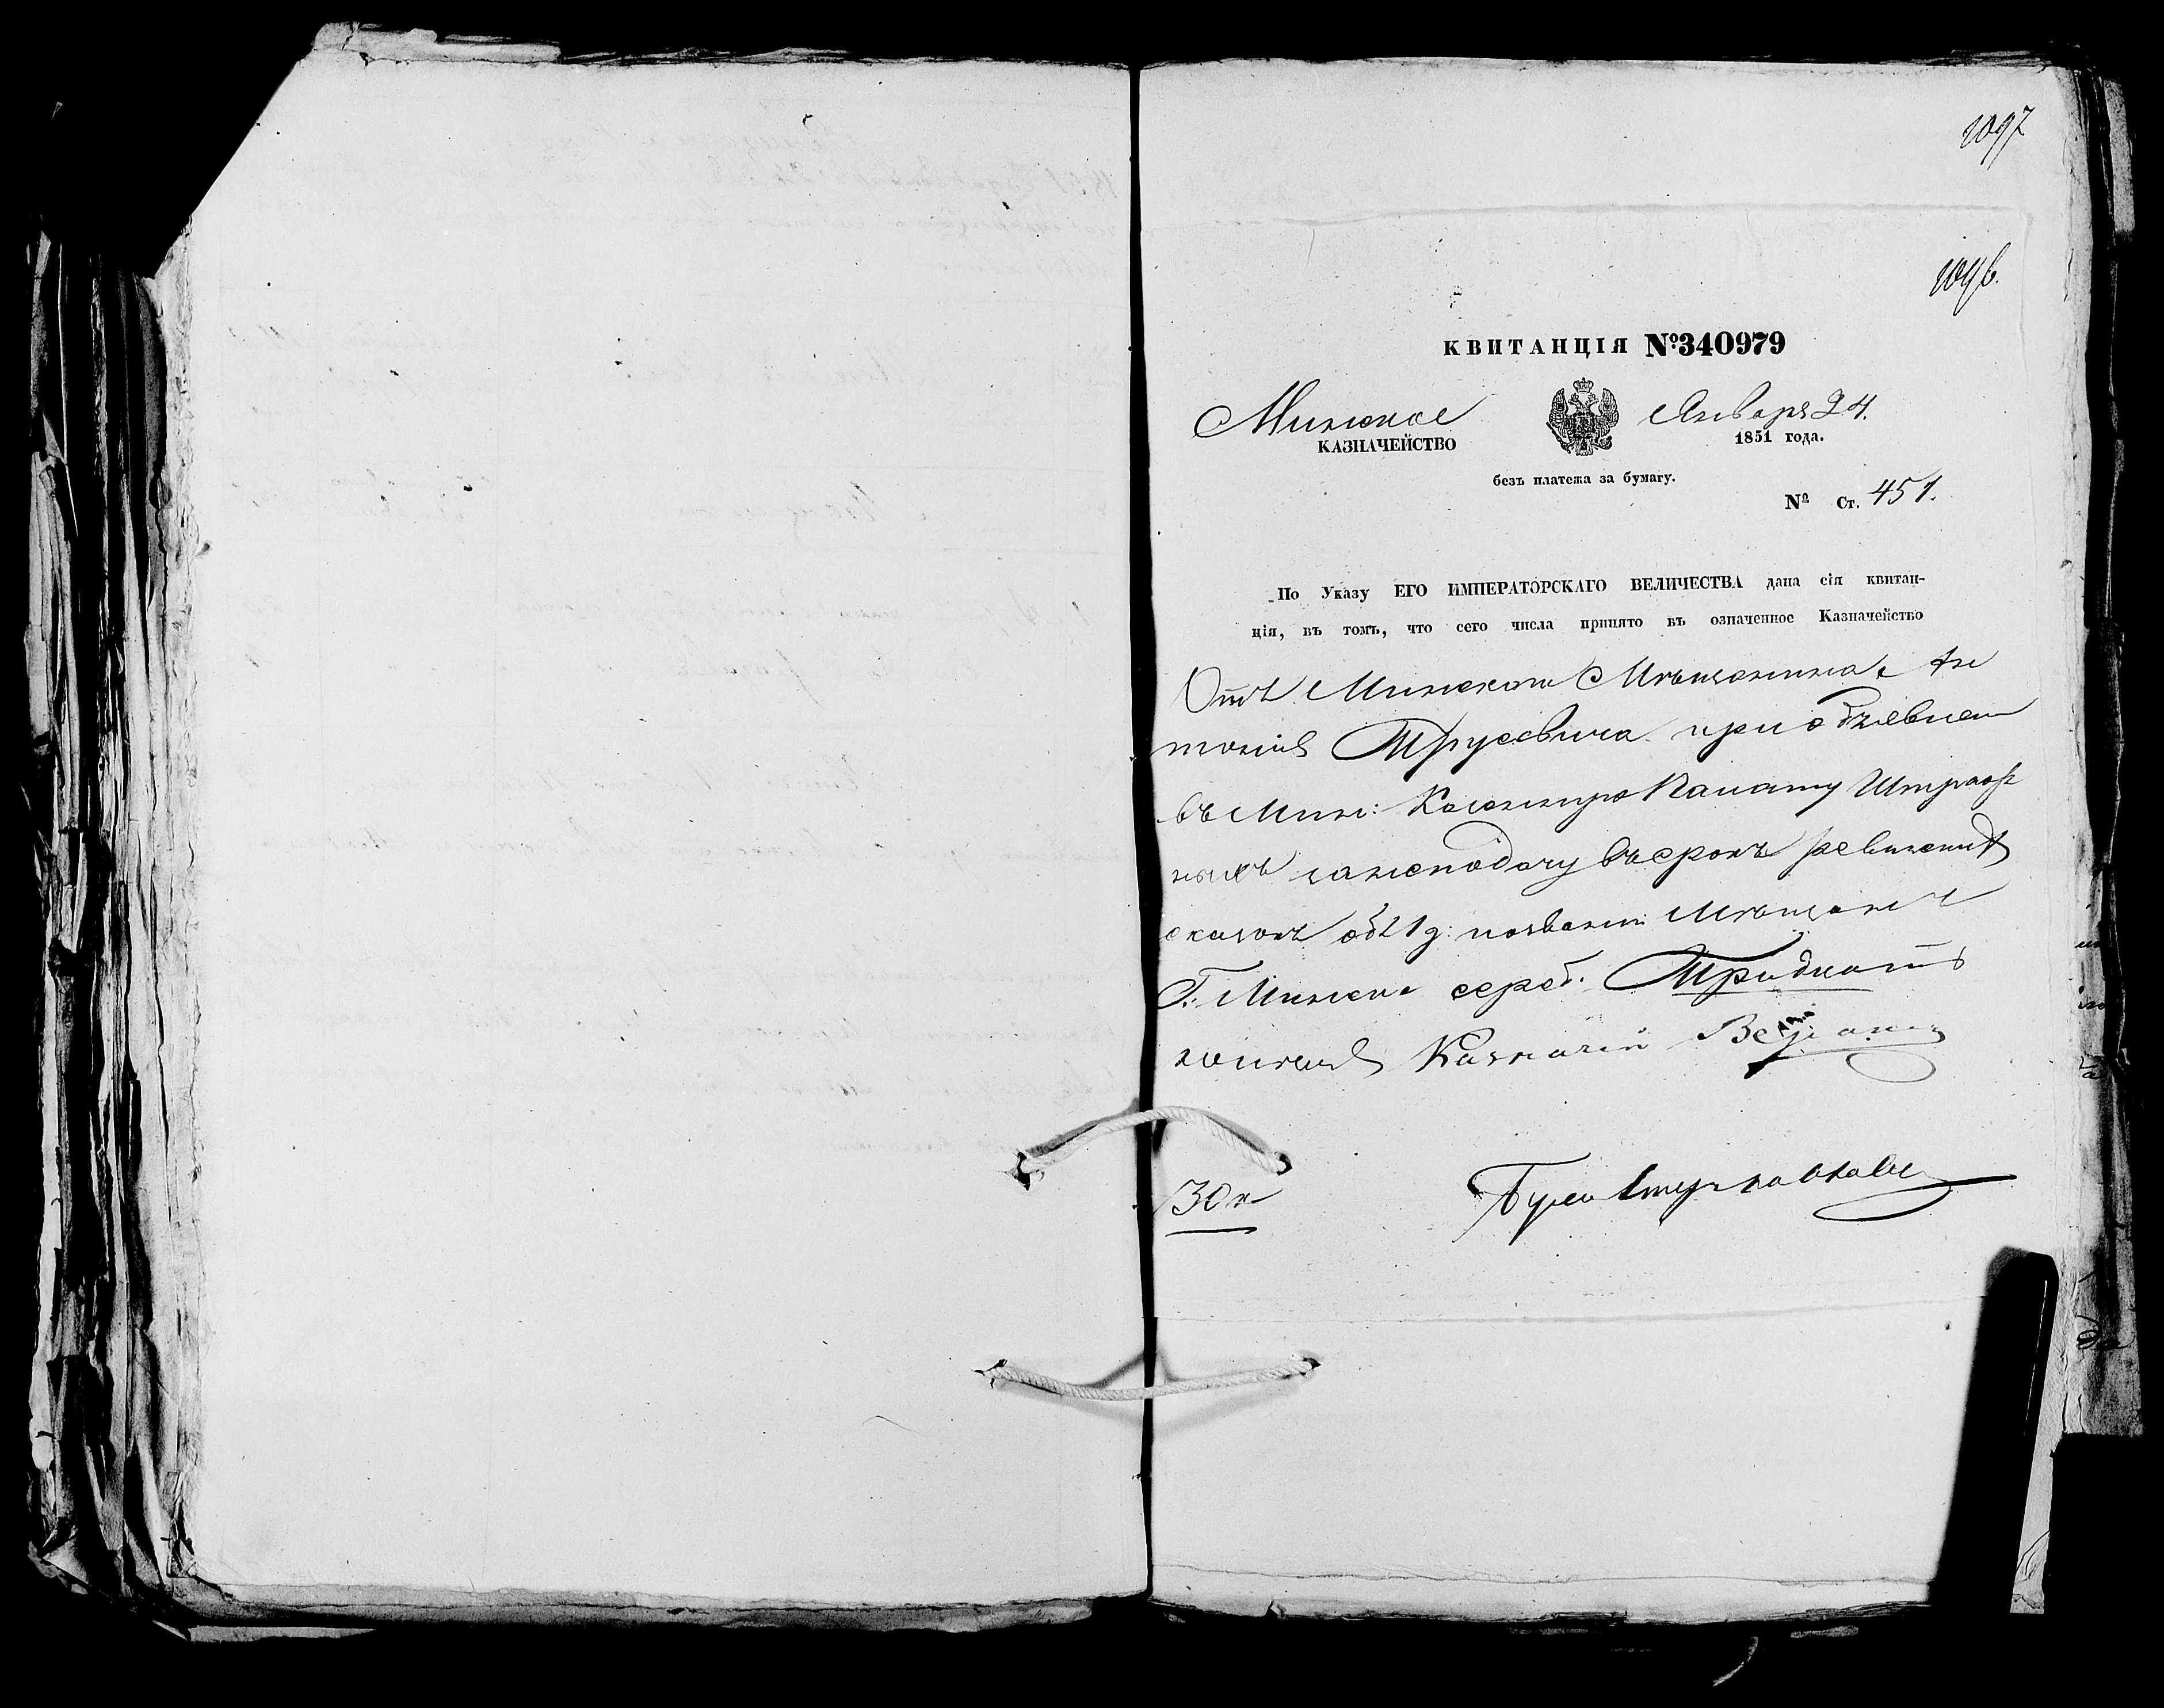 1097
1096.
КВИТАНЦІЯ №340979
Минское
Января 24.
КАЗНАЧЕЙСТВО
1851 года.
безъ платежа за бумагу.
№ Ст. 451.
По Указу ЕГО ИМПЕРАТОРСКАГО ВЕЛИЧЕСТВА дана сія квитан-
ція, въ томъ, что сего числа принято въ означенное Казначейство
Отъ Минскаго Мѣщанина Ан
тонія Трусевича при объявлен
въ Мин: Казенную Палату Штраф
ныхъ за неподачу въ срокъ ревизкихъ
сказокъ об 1 д: по званію Мѣщанъ
Г. Минска сереб. Тридцать
копѣекъ Казначей
30 к
Бухг